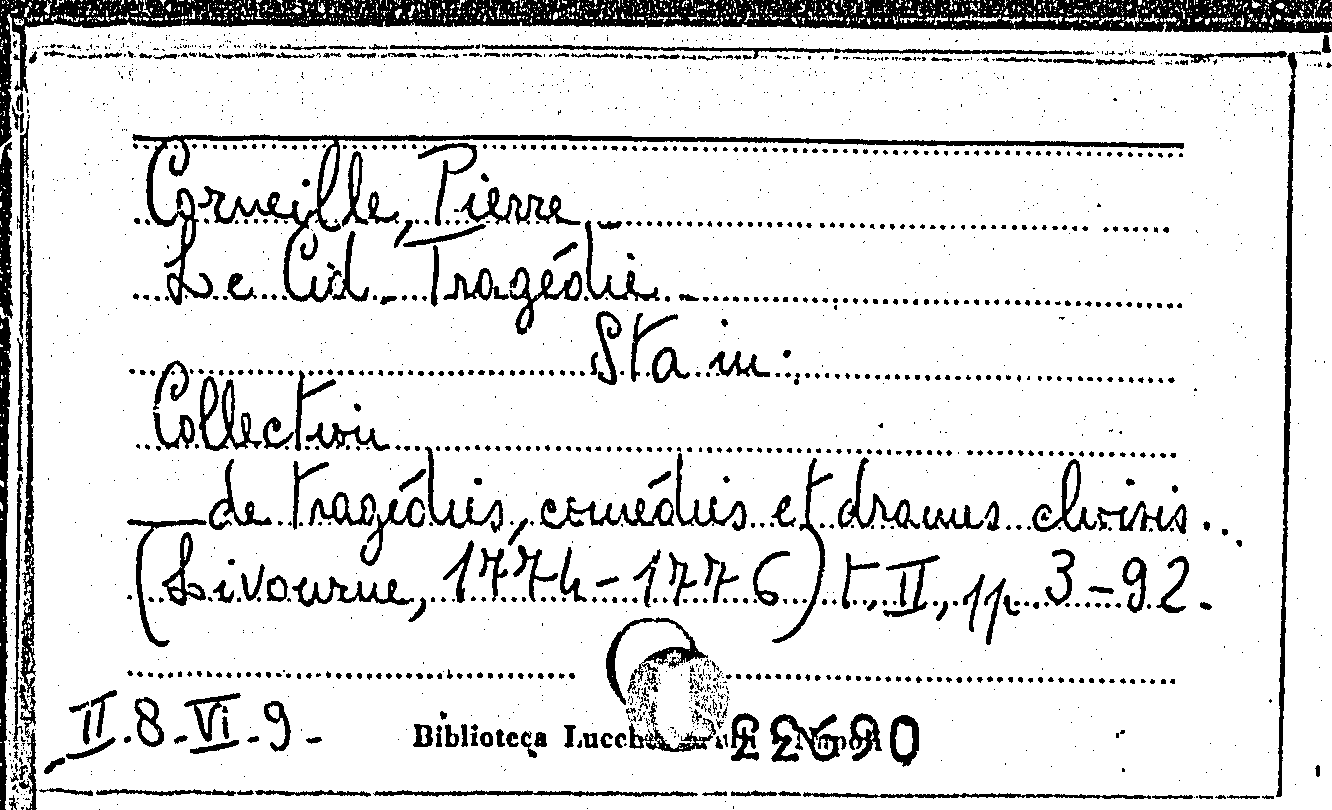 Corneille, Pierre
Le Cid. Tragédie.
Sta in:
Collection
de tragédies, comédies et drames choisis...
(Livourne, 1774-1776) t. II, pp. 3-92.
II.8.VI.9.
Biblioteca 22690